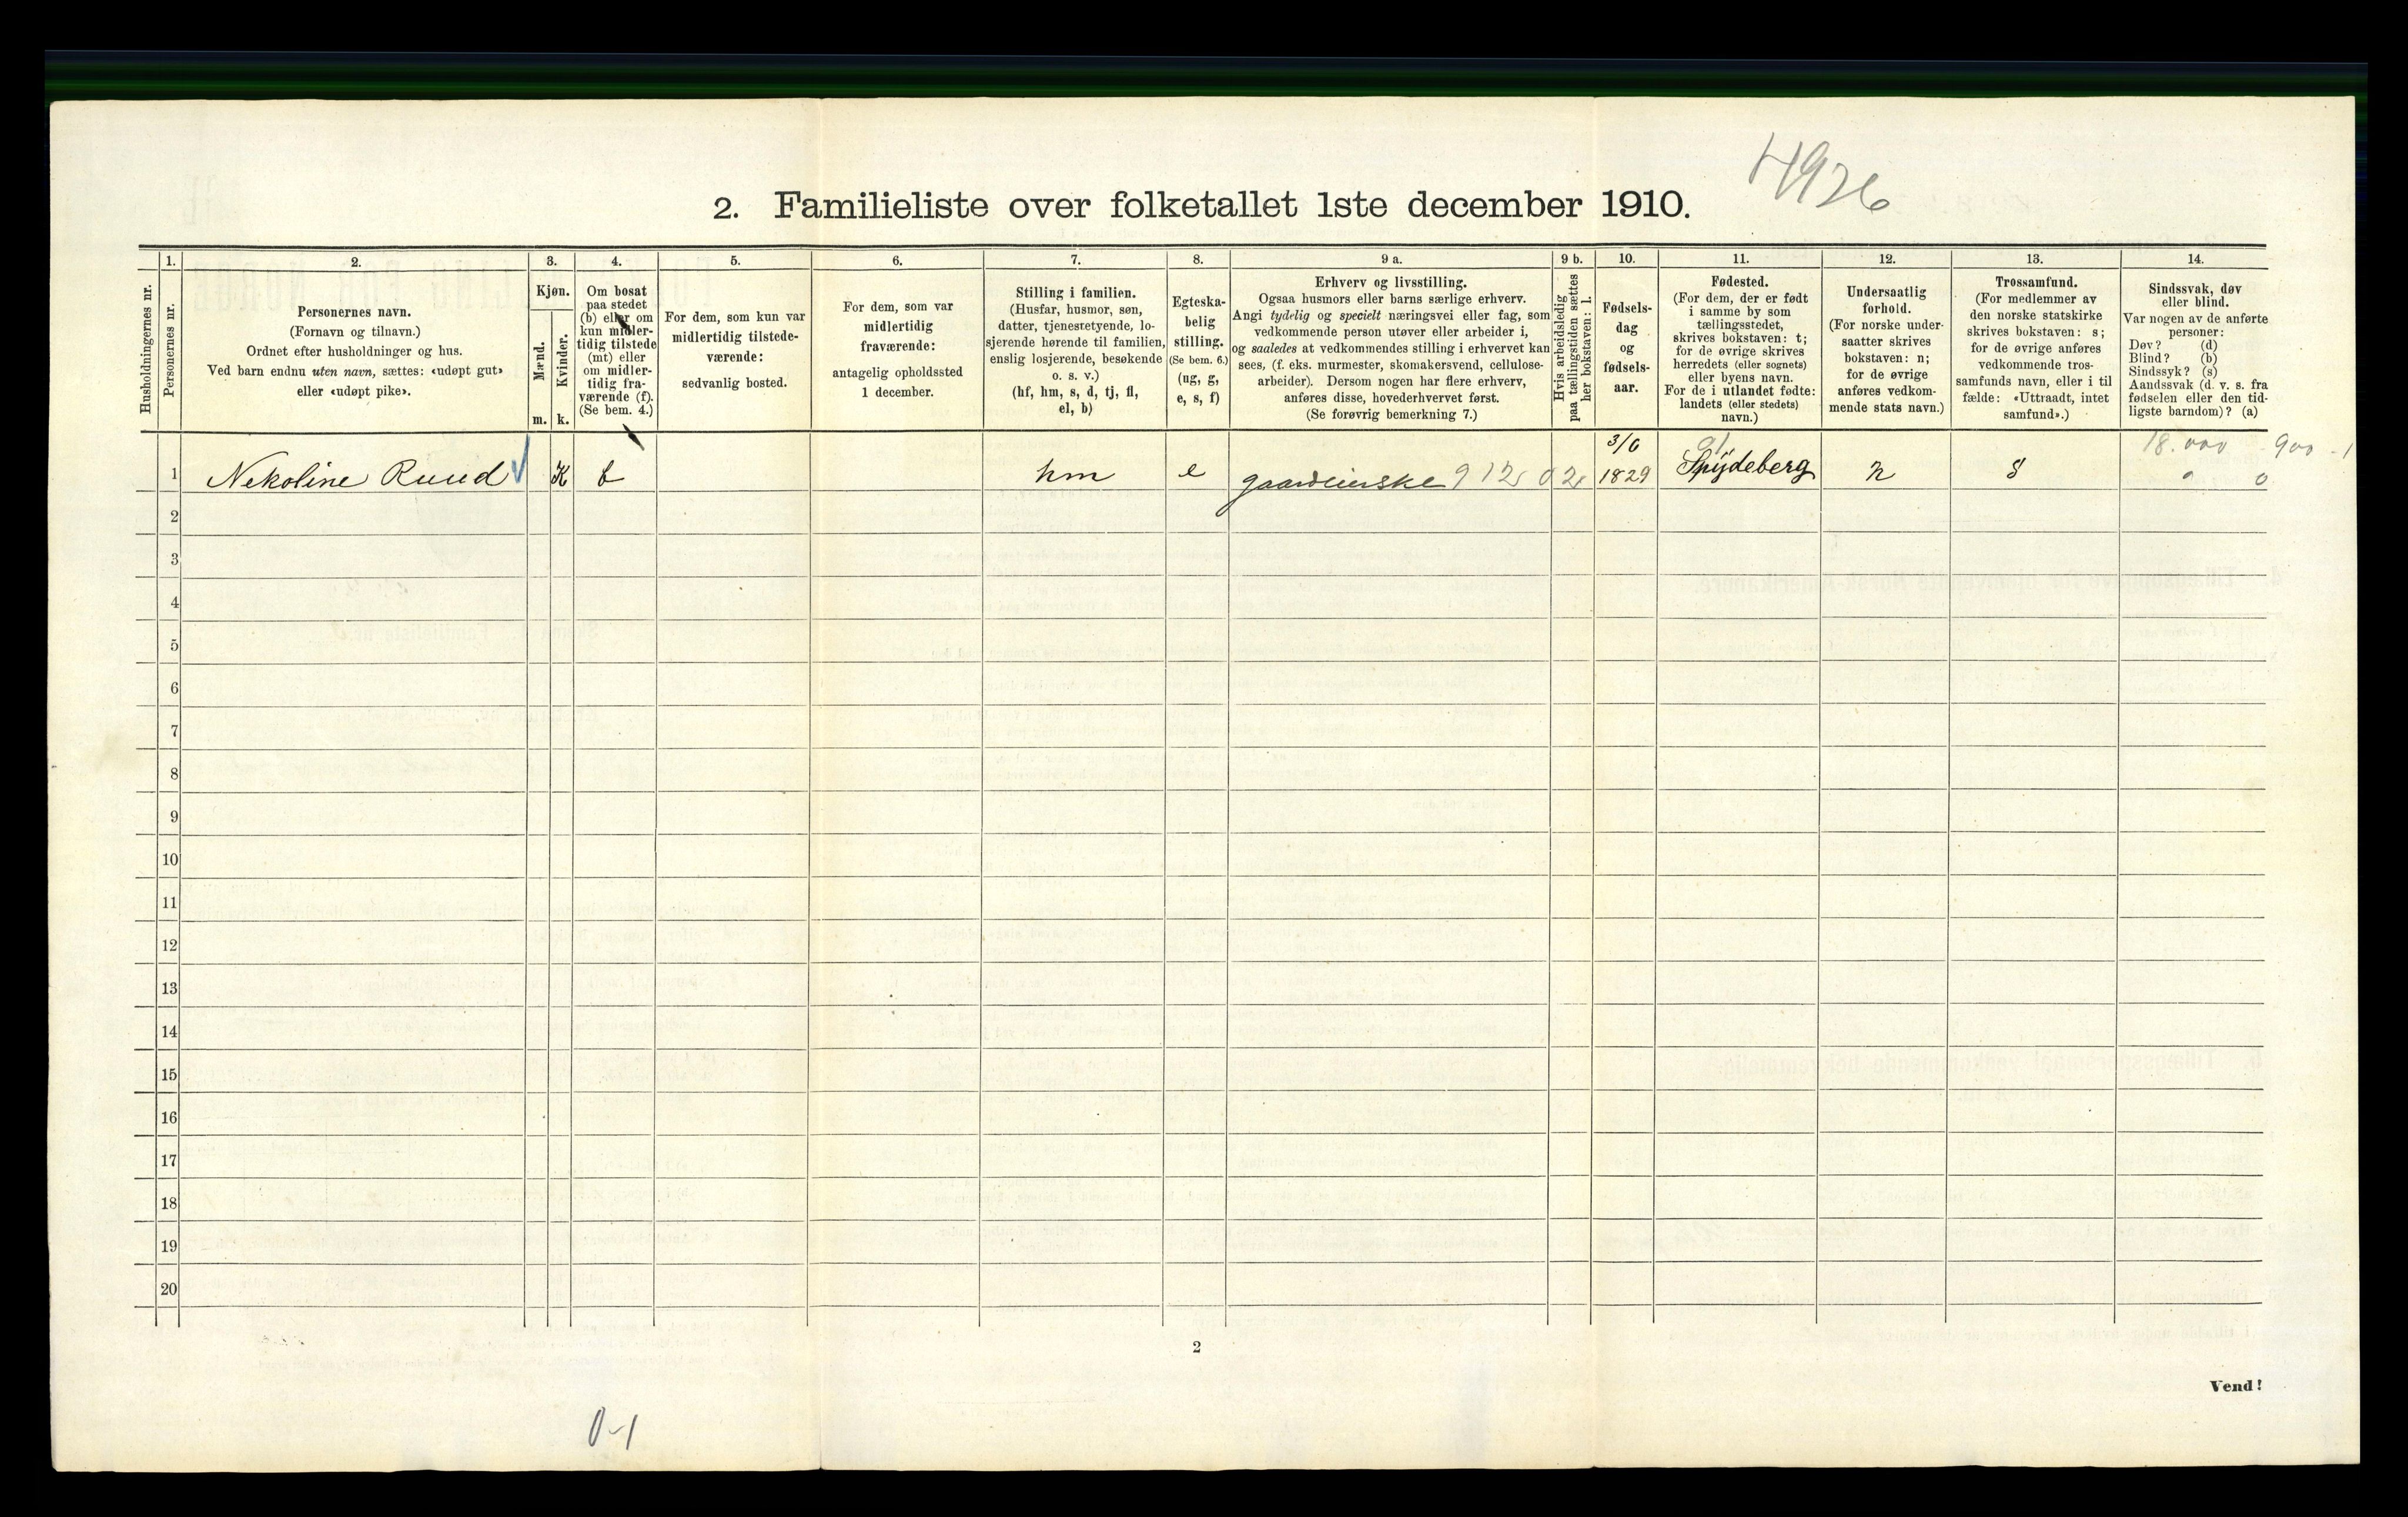 4926
2. Familieliste over folketallet 1ste december 1910.
Husholdningernes nr.
1.
Personernes nr.
2.
Personernes navn.
(Fornavn og tilnavn.)
Ordnet efter husholdninger og hus.
Ved barn endnu uten navn, sættes: «udøpt gut»
eller «udøpt pike».
3.
Kjøn.
Mænd.
Kvinder.
m. k.
4.
Om bosat
paa stedet
(b) eller om
kun midler-
tidig tilstede
(mt) eller
om midler-
tidig fra-
værende (f).
(Se bem. 4.)
5.
For dem, som kun var
midlertidig tilstede-
værende:
sedvanlig bosted.
6.
For dem, som var
midlertidig
fraværende:
antagelig opholdssted
1 december.
7.
Stilling i familien.
(Husfar, husmor, søn,
datter, tjenestetyende, lo-
sjerende hørende til familien,
enslig losjerende, besøkende
o. s. v.)
(hf, hm, s, d, tj, fl,
el, b)
8.
Egteska-
belig
stilling.
(Se bem. 6.)
(ug, g,
e, s, f)
9 a.
Erhverv og livsstilling.
Ogsaa husmors eller barns særlige erhverv.
Angi tydelig og specielt næringsvei eller fag, som
vedkommende person utøver eller arbeider i,
og saaledes at vedkommendes stilling i erhvervet kan
sees, (f. eks. murmester, skomakersvend, cellulose-
arbeider). Dersom nogen har flere erhverv,
anføres disse, hovederhvervet først.
(Se forøvrig bemerkning 7.)
9 b.
Hvis arbeidsledig
paa tællingstiden sættes
her bokstaven: l.
10.
Fødsels-
dag
og
fødsels-
aar.
11.
Fødested.
(For dem, der er født
i samme by som
tællingsstedet,
skrives bokstaven: t;
for de øvrige skrives
herredets (eller sognets)
eller byens navn.
For de i utlandet fødte:
landets (eller stedets)
navn.)
12.
Undersaatlig
forhold.
(For norske under-
saatter skrives
bokstaven: n;
for de øvrige
anføres vedkom-
mende stats navn.)
13.
Trossamfund.
(For medlemmer av
den norske statskirke
skrives bokstaven: s;
for de øvrige anføres
vedkommende tros-
samfunds navn, eller i til
fælde: «Uttraadt, intet
samfund».)
14.
Sindssvak, døv
eller blind.
Var nogen av de anførte
personer:
Døv? (d)
Blind? (b)
Sindssyk? (s)
Aandssvak (d. v. s. fra
fødselen eller den tid-
ligste barndom)? (a)
3/6 18.000 900 - 1
1 Nekoline Ruud K b hm e gaardeierske 912 02 1829 Spydeberg n s 0 0
2
3
4
5
6
7
8
9
10
11
12
13
14
15
16
17
18
19
20
2
Vend!
0-1